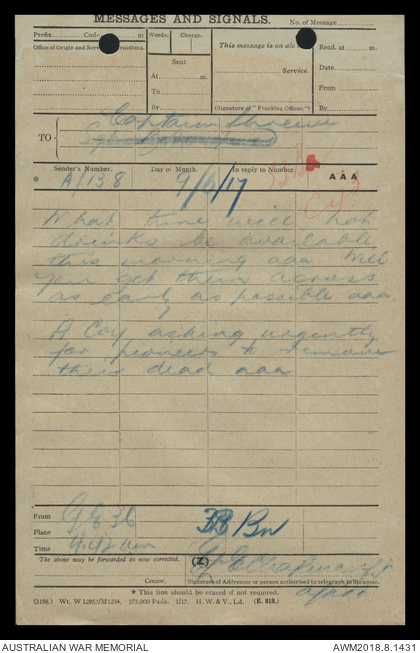 MESSAGES AND SIGNALS.
No. of Message
Prefix Code m
Words. Charge.
This message is on a/c
Recd. at m
Office of Origin and Service Instructions.
Sent
Service.
Date
At m.
From
To
By
(Signature of "Franking Officer.")
By
Captain
TO
Sender's Number. Day of Month. In reply to Number. AAA
A/138 9/6/17
What time will hot
drinks be available
this morning aaa Will
you get them across
as early as possible aaa.
A Coy asking urgently
for pioneers to remove
their dead aaa
From
Place 33 Bn
Time 4.42 am
The above may be forwarded as now corrected. (Z)
Censor. Signature of Addressor or person authorised to telegraph in his name.
* This line should be erased if not required.
(3198.) Wt. W 12952/M1294. 375,000 Pads. 1/17. H. W. & V., Ld. (E. 818.)
AUSTRALIAN WAR MEMORIAL AWM2018.8.1431